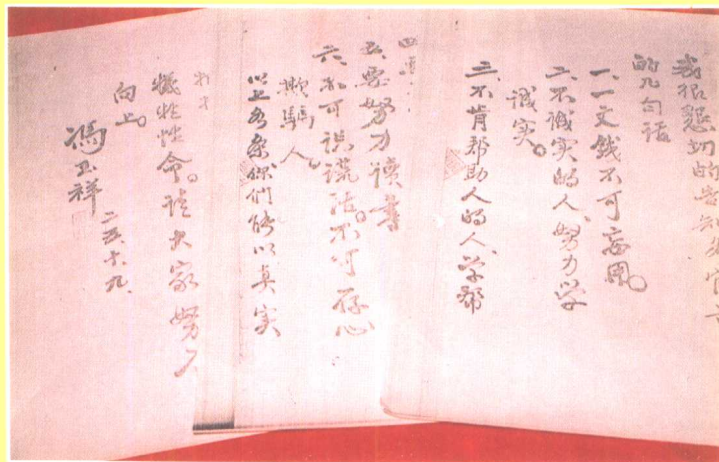 我很恳切的告知
的几句话
一、一文钱不可妄用。
二、不诚实的人、努力学
诚实。
三、不肯帮助人的人、学帮
五、要努力读书
六、不可说谎话。不可存心
欺骗人。
以上各条你们能以真实
牺牲性命。请大家努力
向上。
冯玉祥
二五、十、九、